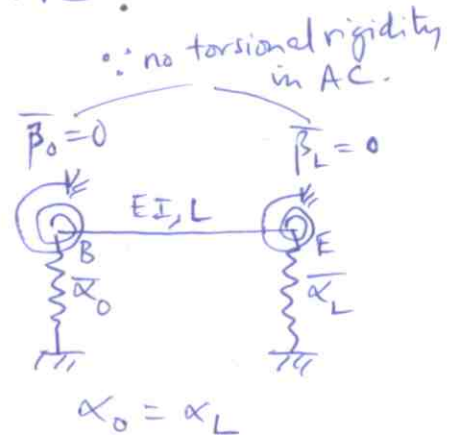 ∵ no torsional rigidity
in AC.
β̅₀=0
β̅_L = 0
EI, L
B
E
α̅₀
α̅_L
α₀ = α_L